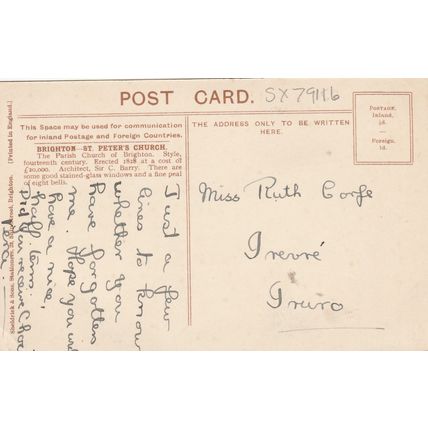 POST CARD.
SX7911.6
This Space may be used for communication
for Inland Postage and Foreign Countries.
THE ADDRESS ONLY TO BE WRITTEN
HERE.
POSTAGE,
Inland,
½d.
Foreign,
1d.
BRIGHTON—ST. PETER'S CHURCH.
The Parish Church of Brighton. Style,
fourteenth century. Erected 1828 at a cost of
£20,000. Architect, Sir C. Barry. There are
some good stained-glass windows and a fine peal
of eight bells.
[Printed in England.]
& Sons, Stationers, Brighton.
Just a few
lines to know
whether you
have forgotten
me. Hope you will
have a nice
half term.
Did you receive
Miss Ruth
Trevré
Truro